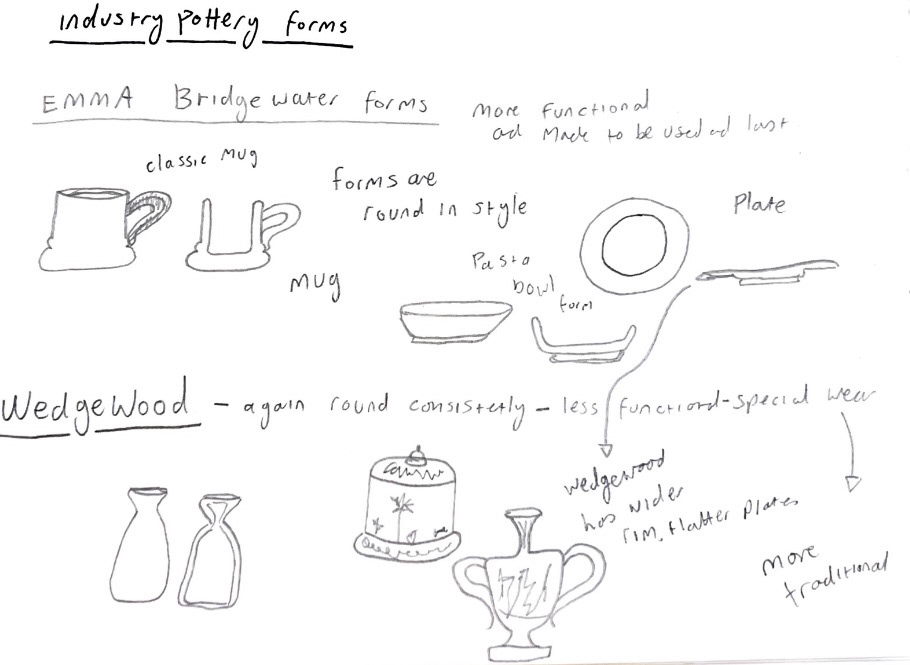 industry pottery forms
EMMA Bridgewater forms
more functional
ad Made to be used ad last
classic mug
forms are
round in style
mug
Pasta
bowl
form
Plate
WedgeWood - again round consistetly - less functiond-special wear
wedgewood
has wider
rim, flatter plates
more
traditional